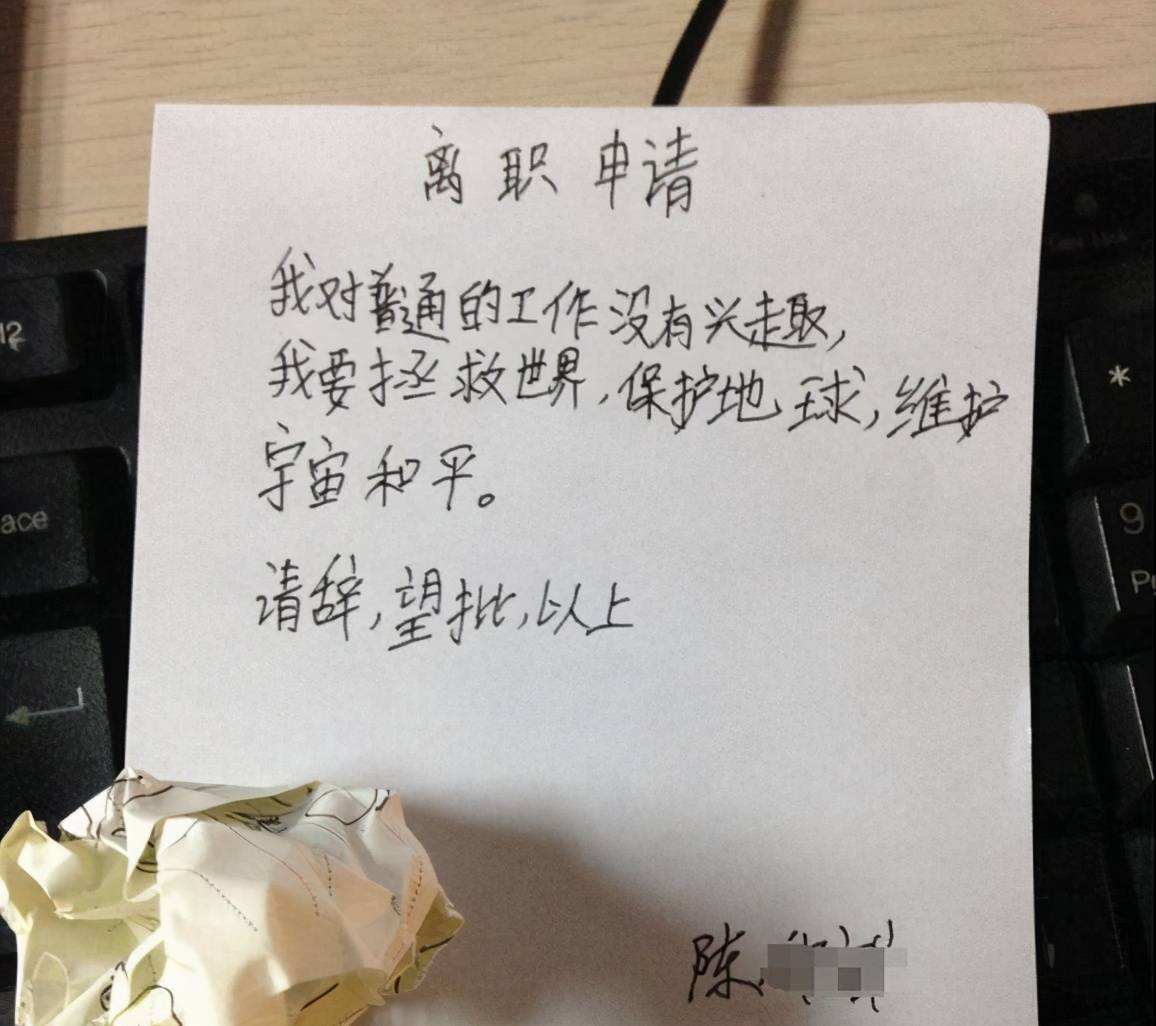 离职申请
我对普通的工作没有兴趣,
我要拯救世界,保护地球,维护
宇宙和平。
请辞,望批,以上
陈
12
*
ace
9